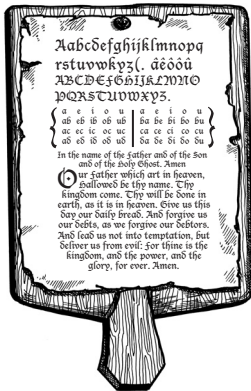 Aabcdefghijklmnopq
rstuvwkyz(. âêôôû
ABCDEFGHIJKLMNO
PQRSTUVWXYZ.
{ a e i o u | a e i o u }
ab eb ib ob ub | ba be bi bo bu
ac ec ic oc uc | ca ce ci co cu
ad ed id od ud | da de di do du
In the name of the Father and of the Son
and of the Holy Ghost. Amen
Our Father which art in heaven,
Hallowed be thy name. Thy
kingdom come. Thy will be done in
earth, as it is in heaven. Give us this
day our daily bread. And forgive us
our debts, as we forgive our debtors.
And lead us not into temptation, but
deliver us from evil: For thine is the
kingdom, and the power, and the
glory, for ever. Amen.